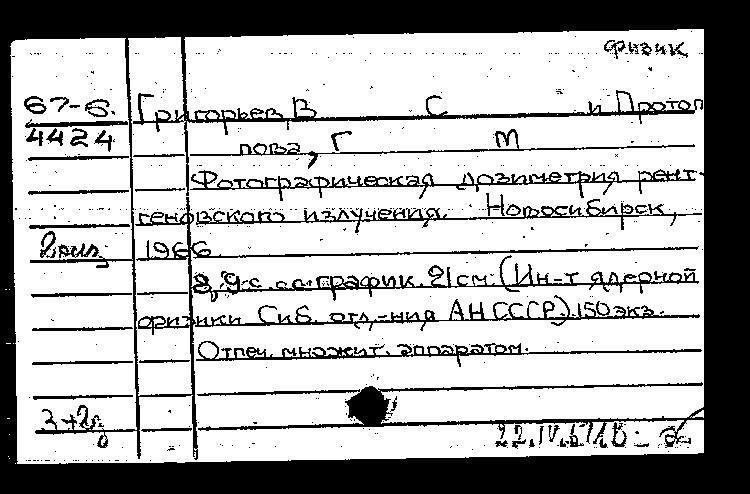 физик
67-6. Григорьев, В С и Протоп
4424 пова, Г М
Фотографическая дозиметрия рент-
геновского излучения. Новосибирск,
2 физ 1966
с. с график. 21 см. (Ин-т ядерной
физики Сиб. отд-ния АН СССР). 150 экз.
Отпеч. множит. аппаратом.